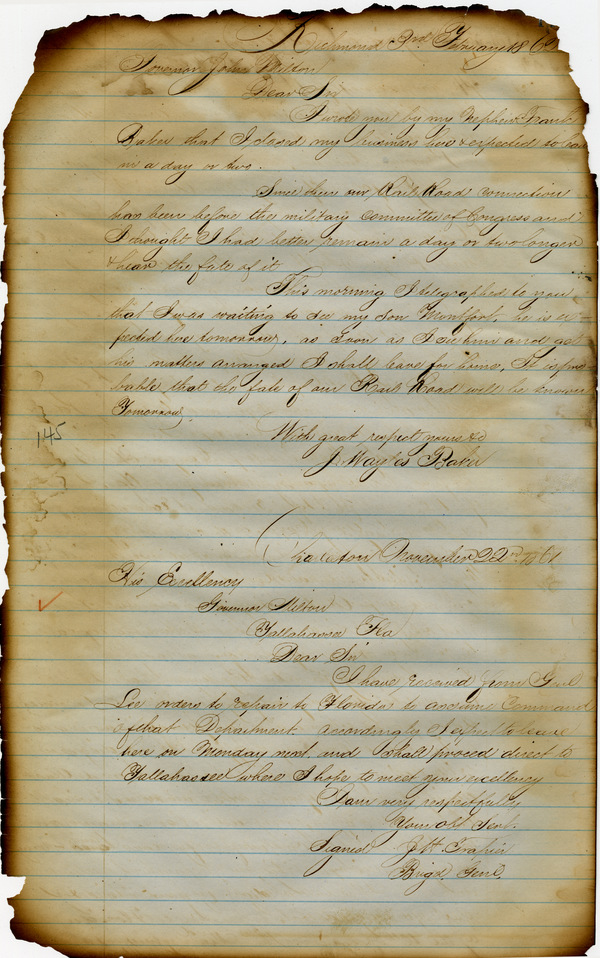 Richmond 3rd February 186
Governor John Milton
Dear Sir
I wrote you by my Nephew Frank
Baker that I closed my business here & expected to leave
in a day or two.
Since then our Rail Road connection
has been before the military committee of Congress and
I thought I had better remain a day or two longer
& hear the fate of it.
This morning I telegraphed to you
that I was waiting to see my son Montfort, he is ex
pected here tomorrow, as soon as I see him and get
his matters arranged I shall leave for home, It is pro
bable that the fate of our Rail Road will be known
Tomorrow.
With great respect yours &c
J. Baker
145
Charleston November 22nd 1861
His Excellency
Governor Milton
Tallahassee Fla
Dear Sir
I have received from Genl
Lee orders to repair to Florida to assume Command
of that Department accordingly I expect to leave
here on Monday next, and shall proceed direct to
Tallahassee where I hope to meet your excellency
I am very respectfully
Your obt Servt.
Signed J. H. Trapier
Brigd Genl.